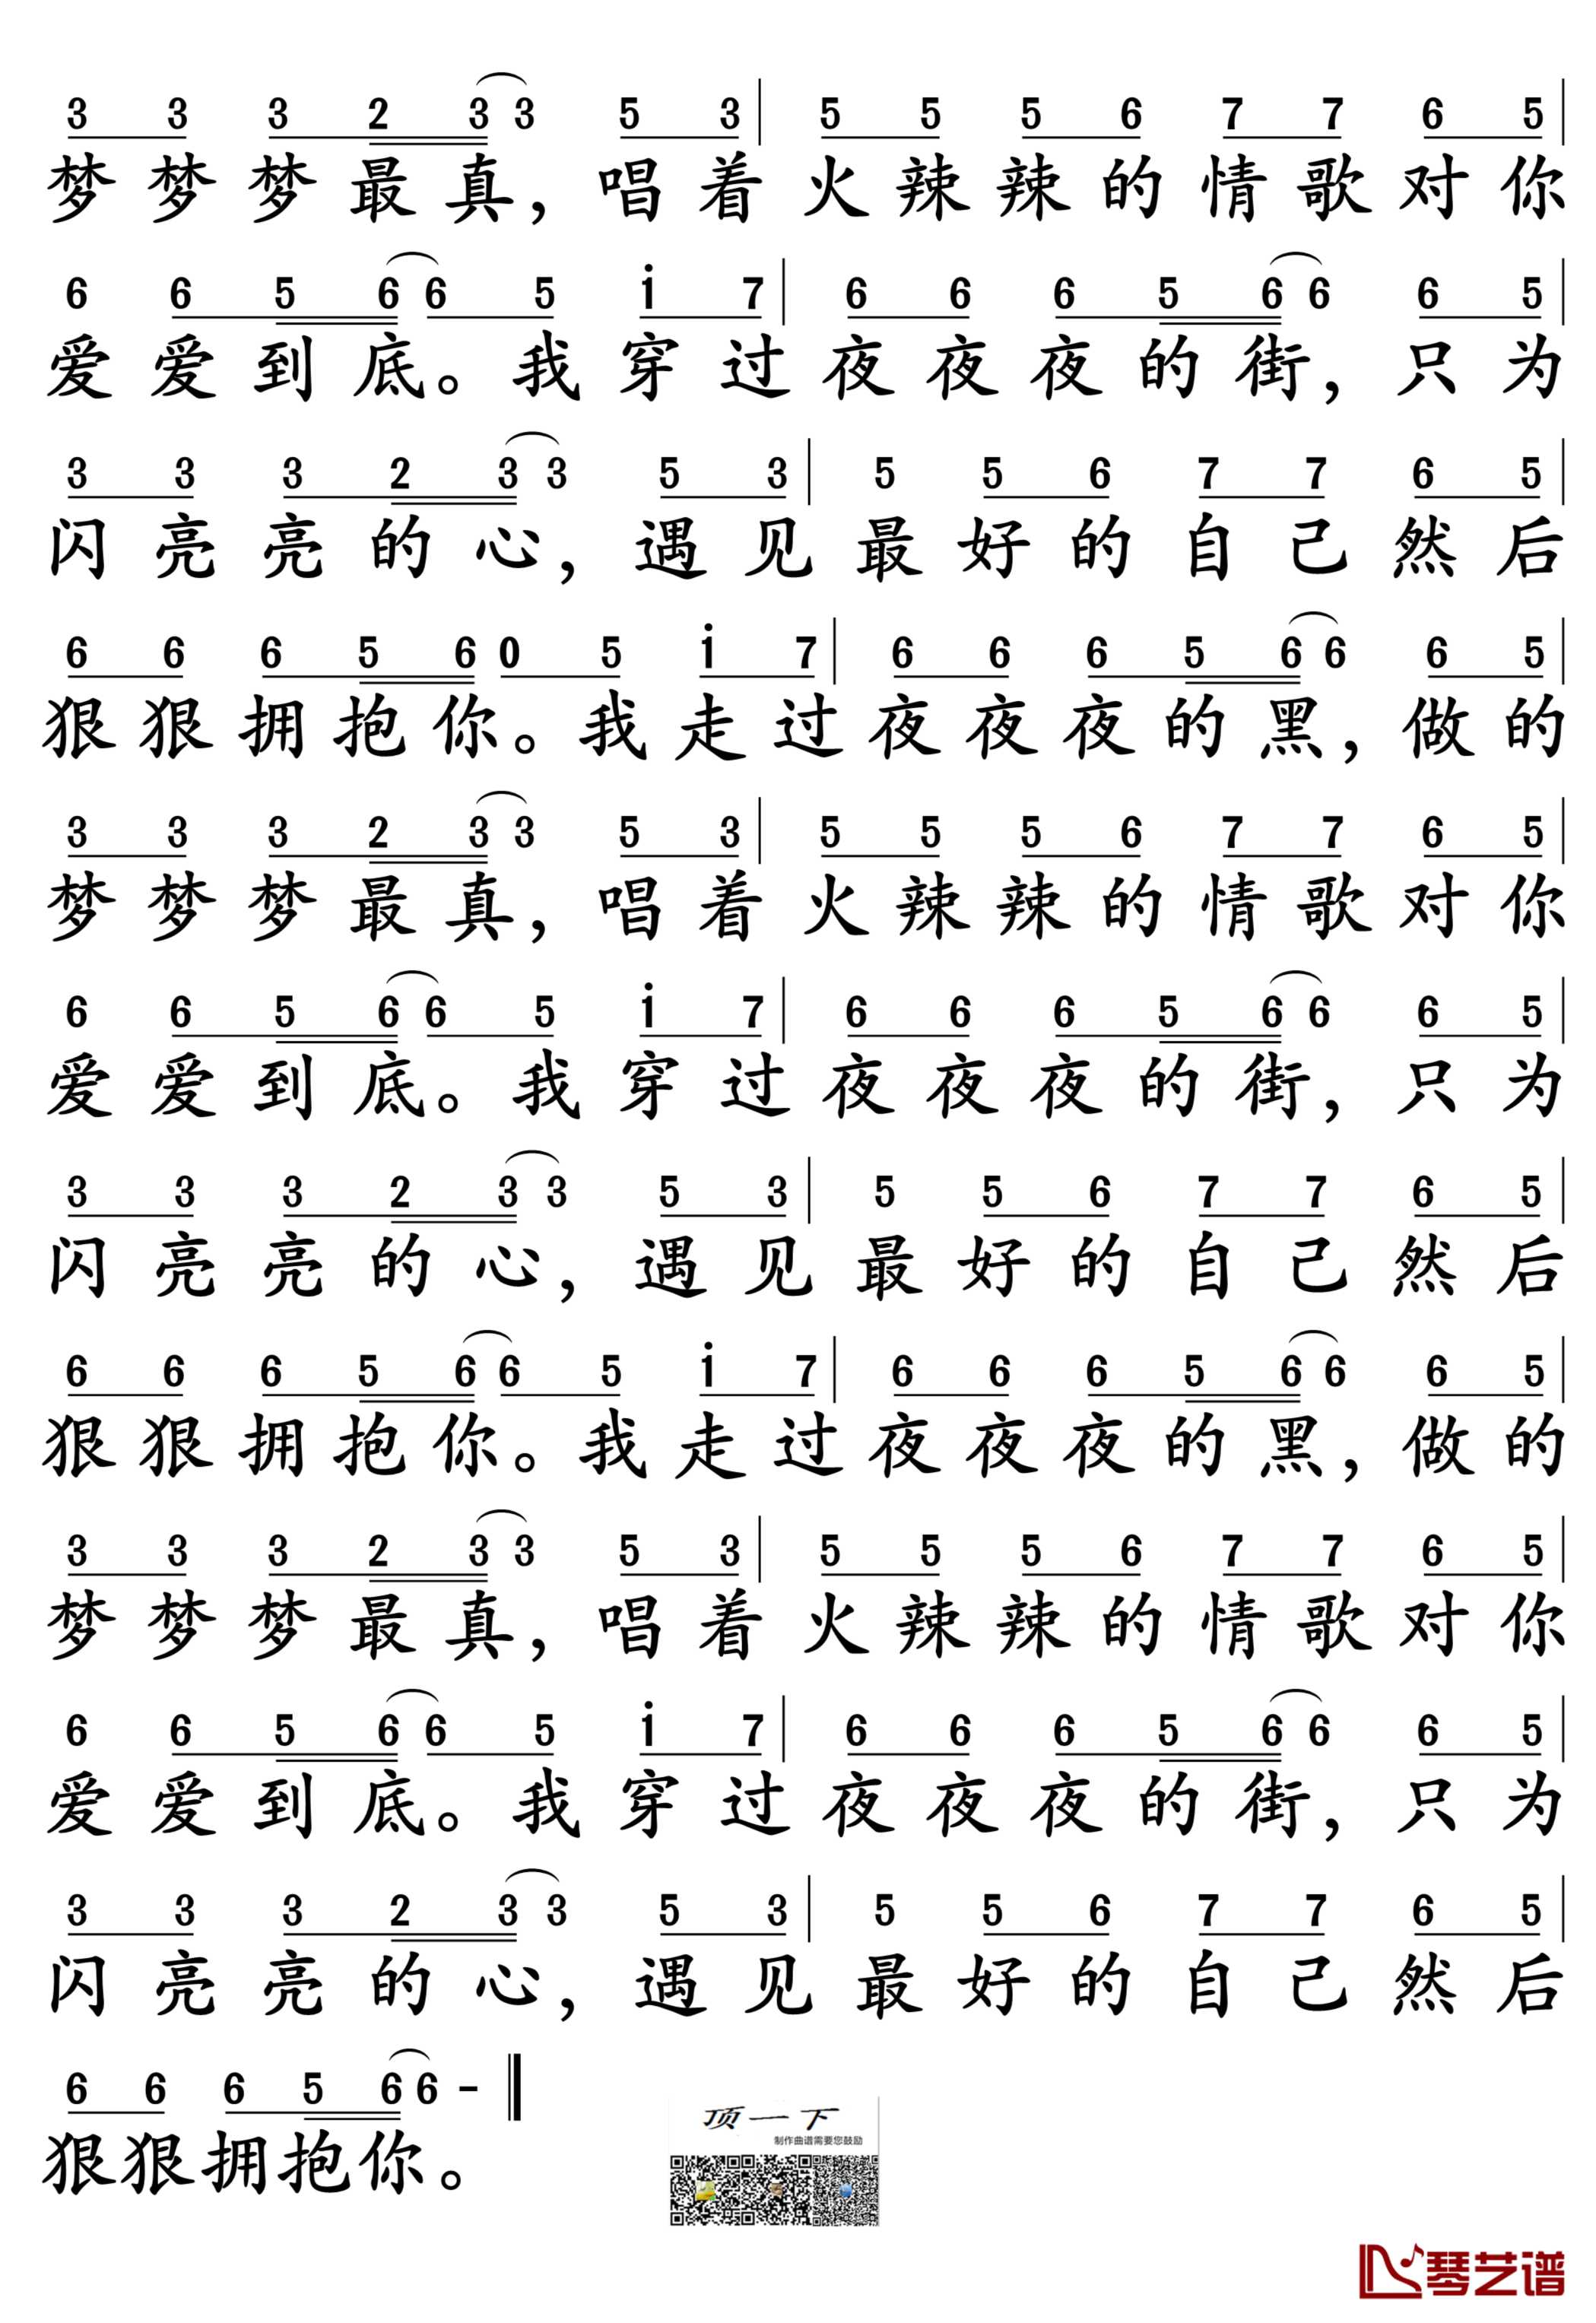 3 3 3 2 3 3 5 3 | 5 5 5 6 7 7 6 5 |
梦梦梦最真，唱着火辣辣的情歌对你
6 6 5 6 6 5 i 7 | 6 6 6 5 6 6 6 5 |
爱爱到底。我穿过夜夜夜的街，只为
3 3 3 2 3 3 5 3 | 5 5 6 7 7 6 5 |
闪亮亮的心，遇见最好的自己然后
6 6 6 5 6 0 5 i 7 | 6 6 6 5 6 6 6 5 |
狠狠拥抱你。我走过夜夜夜的黑，做的
3 3 3 2 3 3 5 3 | 5 5 5 6 7 7 6 5 |
梦梦梦最真，唱着火辣辣的情歌对你
6 6 5 6 6 5 i 7 | 6 6 6 5 6 6 6 5 |
爱爱到底。我穿过夜夜夜的街，只为
3 3 3 2 3 3 5 3 | 5 5 6 7 7 6 5 |
闪亮亮的心，遇见最好的自己然后
6 6 6 5 6 6 5 i 7 | 6 6 6 5 6 6 6 5 |
狠狠拥抱你。我走过夜夜夜的黑，做的
3 3 3 2 3 3 5 3 | 5 5 5 6 7 7 6 5 |
梦梦梦最真，唱着火辣辣的情歌对你
6 6 5 6 6 5 i 7 | 6 6 6 5 6 6 6 5 |
爱爱到底。我穿过夜夜夜的街，只为
3 3 3 2 3 3 5 3 | 5 5 6 7 7 6 5 |
闪亮亮的心，遇见最好的自己然后
6 6 6 5 6 6 - ‖
狠狠拥抱你。
顶一下
制作曲谱需要您鼓励
琴艺谱